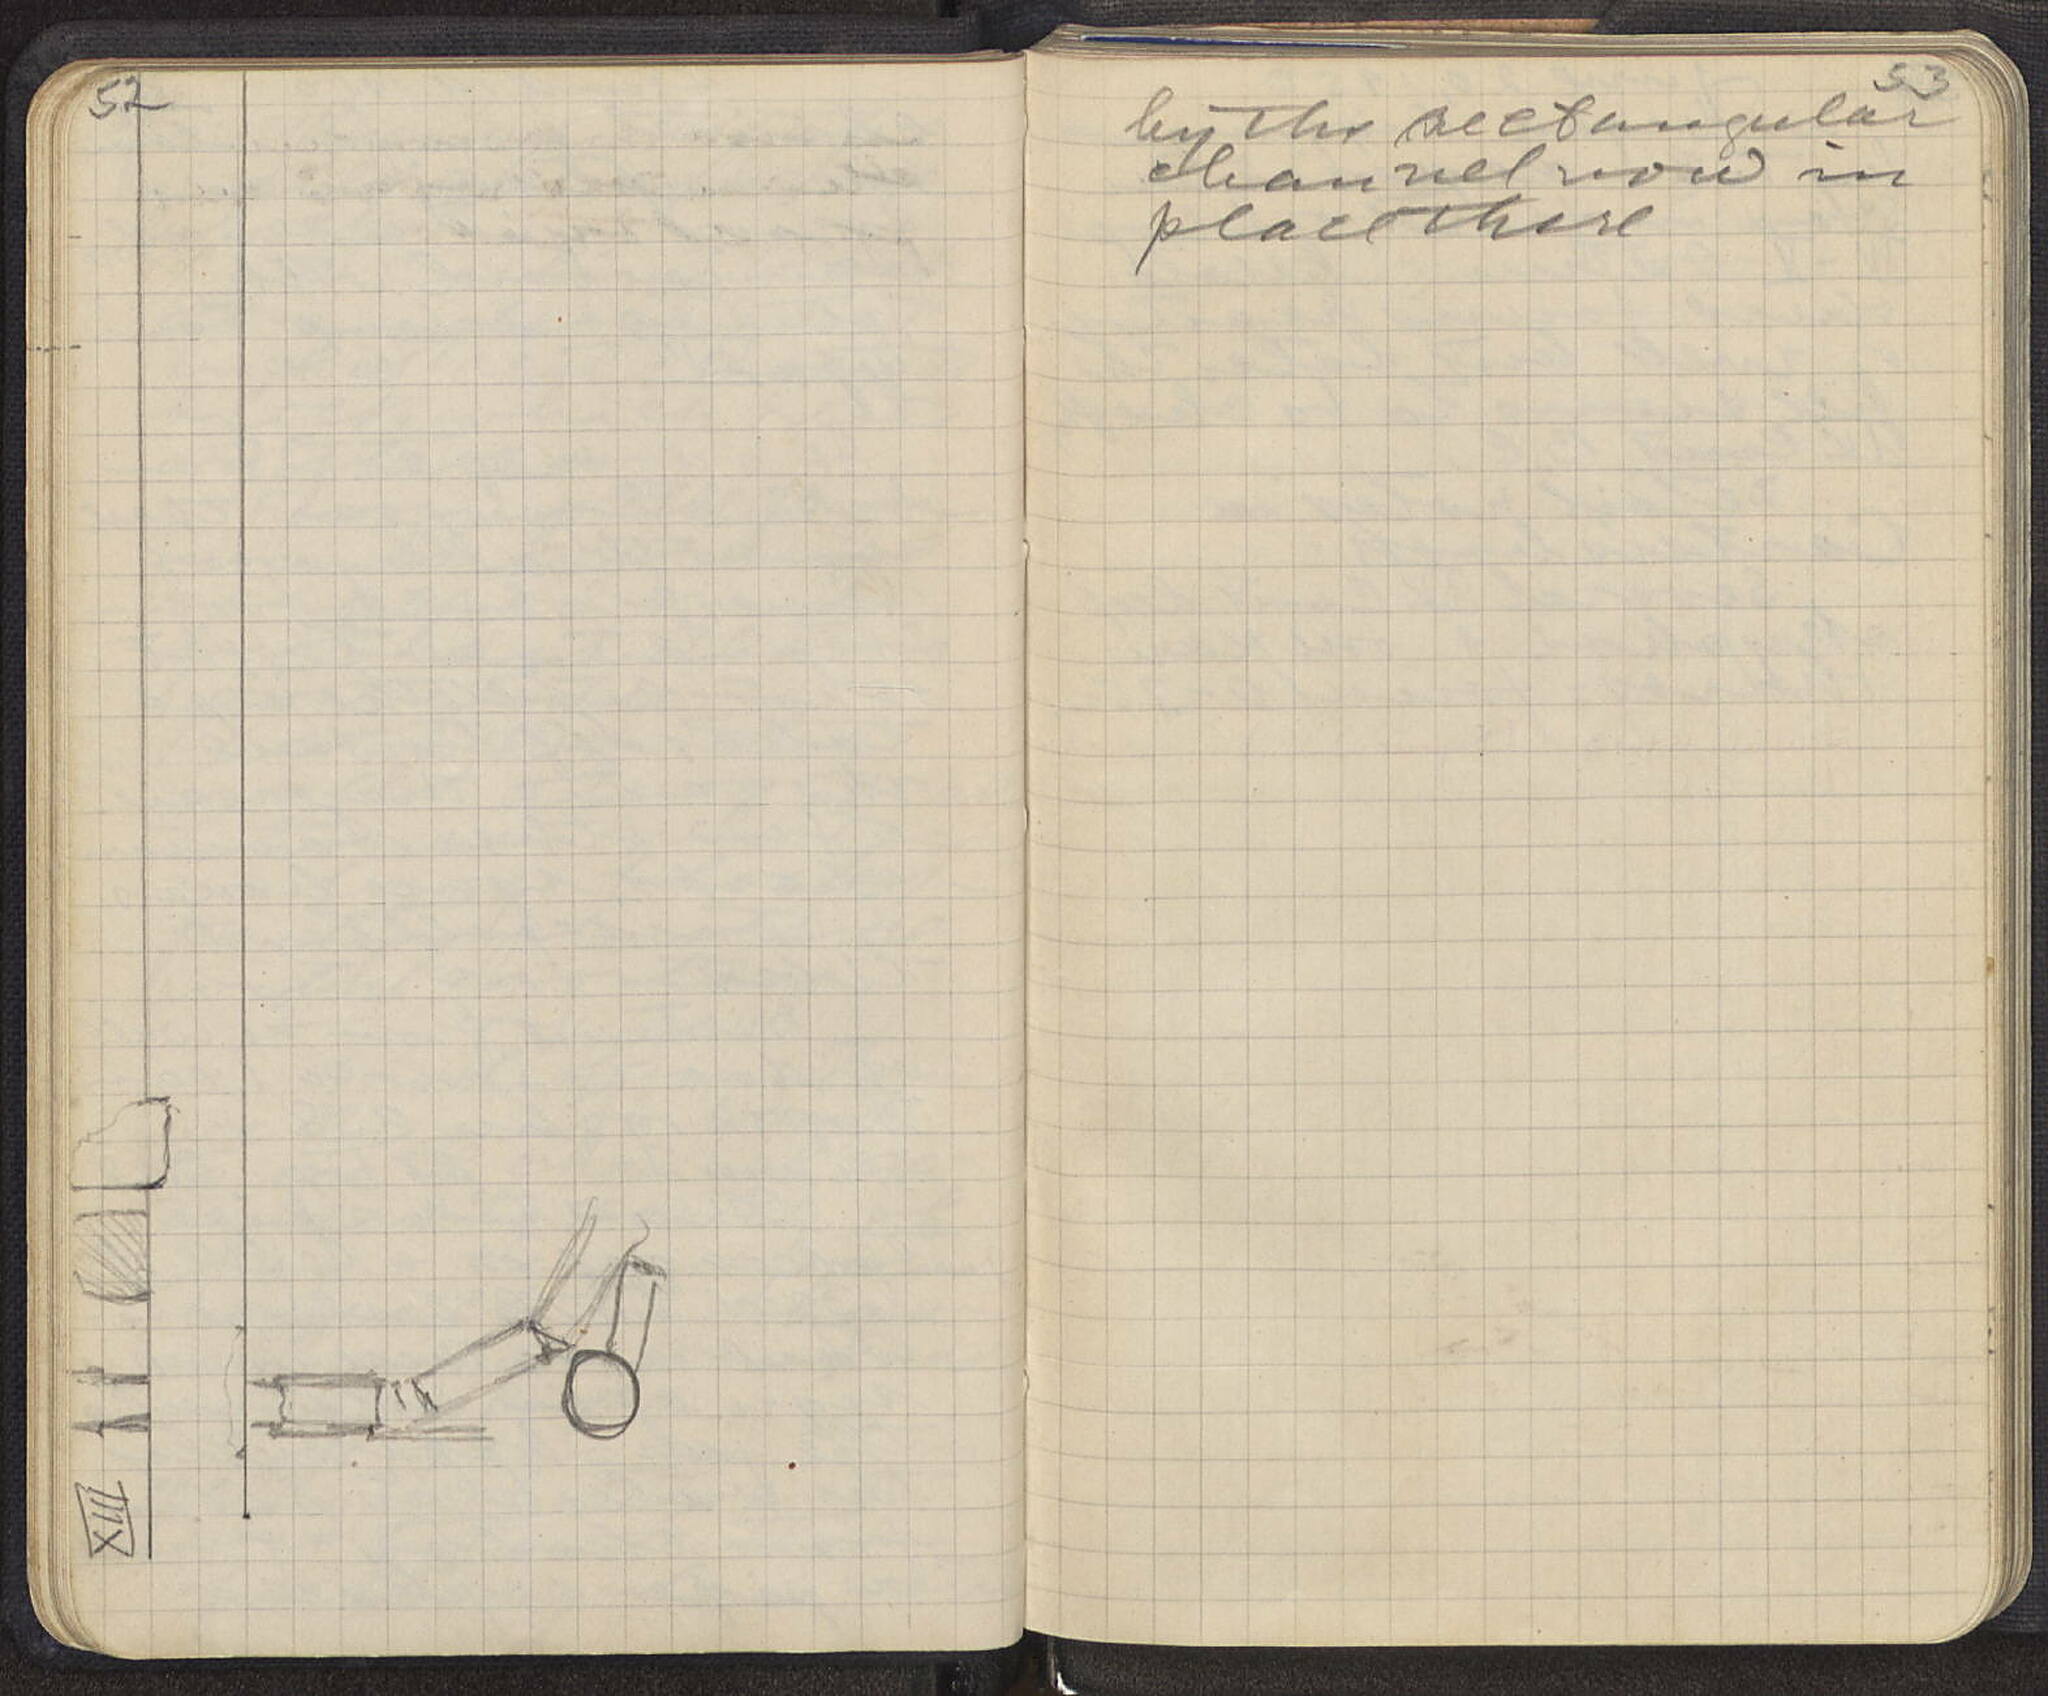 52
XIII
53
by the rectangular
channel now in
place there